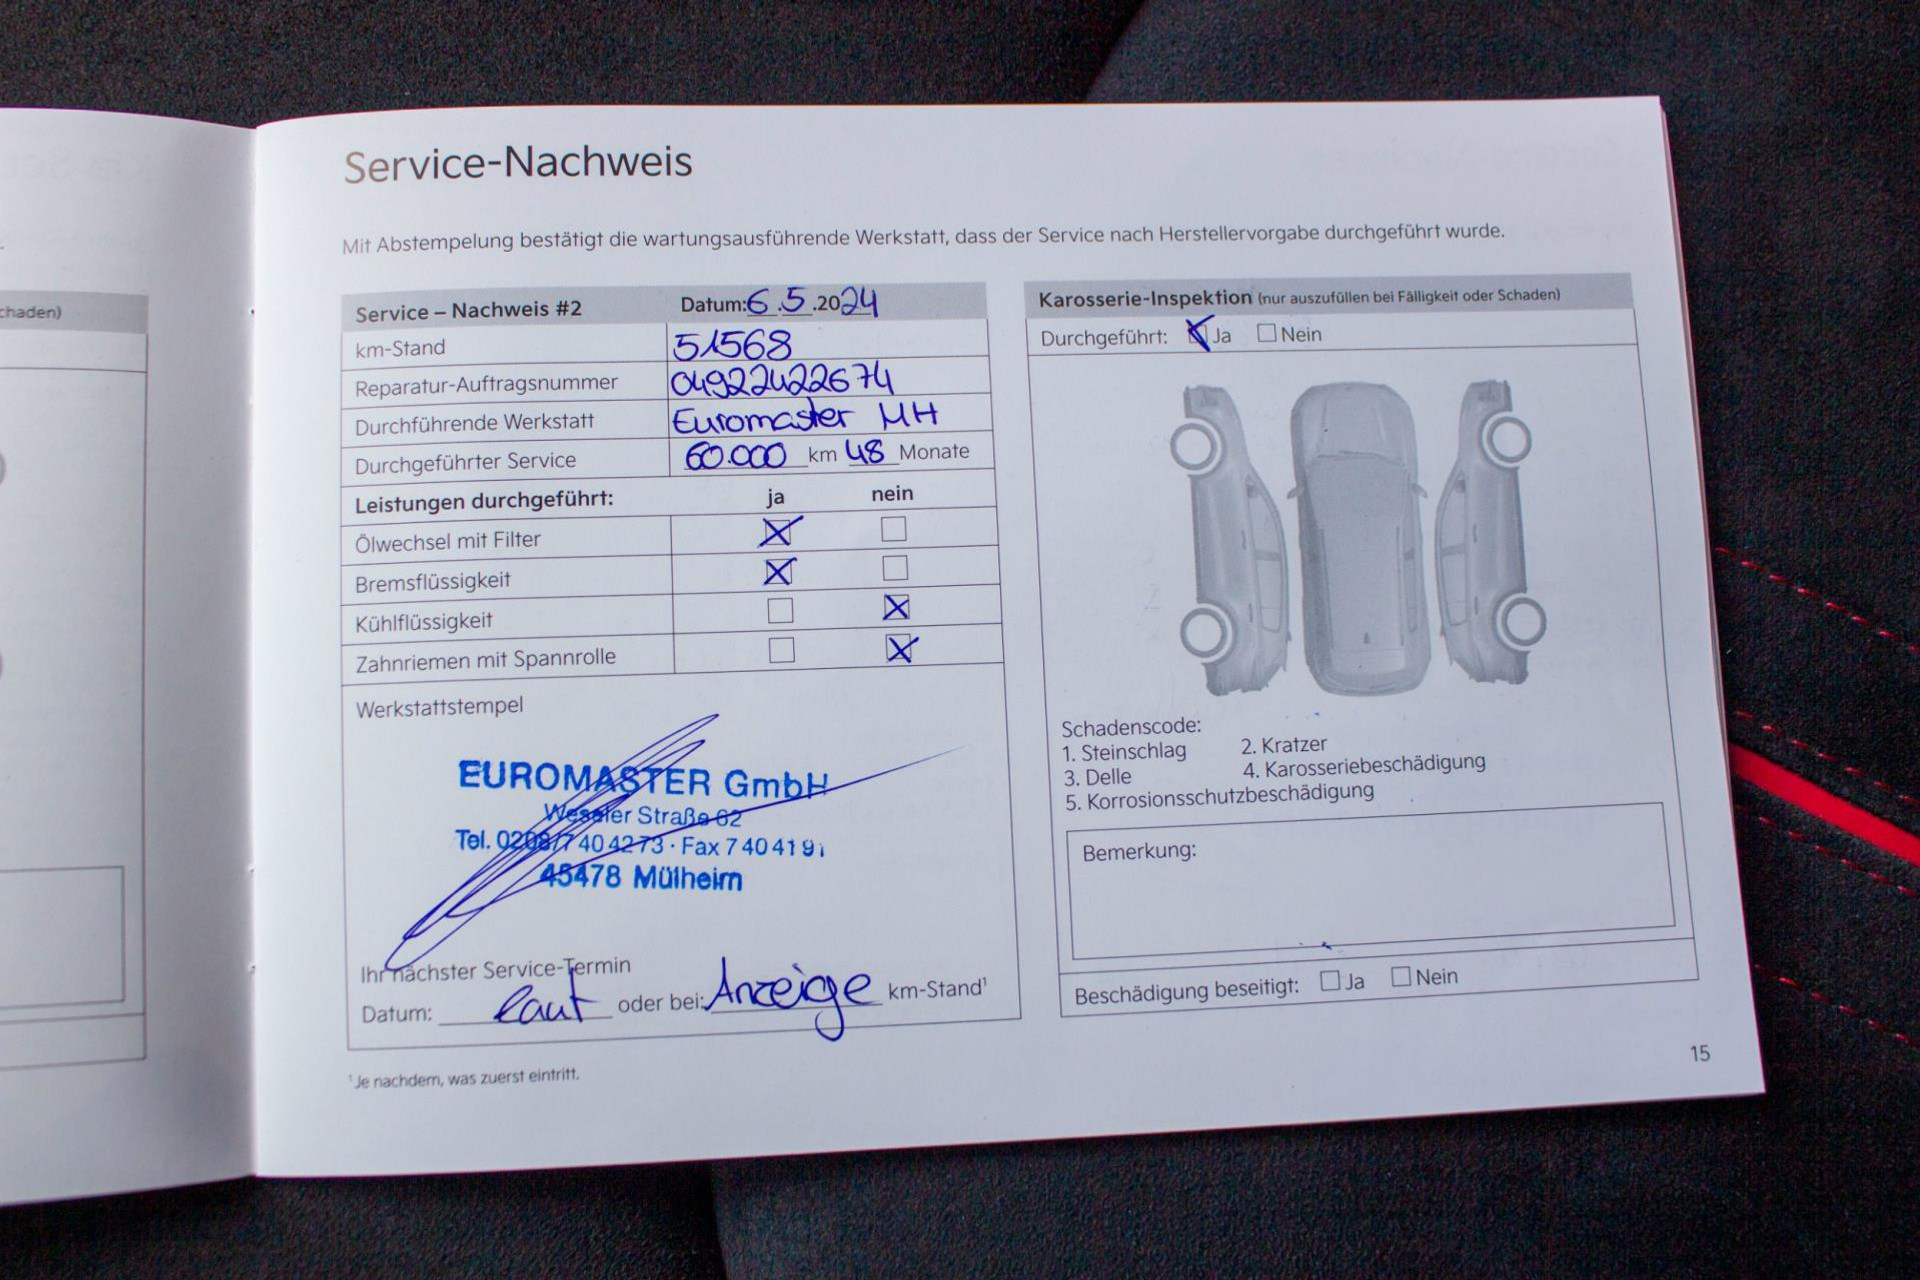 Service-Nachweis
Mit Abstempelung bestätigt die wartungsausführende Werkstatt, dass der Service nach Herstellervorgabe durchgeführt wurde.
chaden)
Service – Nachweis #2 Datum: 6.5.2024
km-Stand 51568
Reparatur-Auftragsnummer 04922422674
Durchführende Werkstatt Euromaster MH
Durchgeführter Service 60.000 km 48 Monate
Leistungen durchgeführt: ja nein
Ölwechsel mit Filter
Bremsflüssigkeit
Kühlflüssigkeit
Zahnriemen mit Spannrolle
Werkstattstempel
EUROMASTER GmbH
Weseler Straße 62
Tel. 0208/7 40 42 73 · Fax 7 40 41 91
45478 Mülheim
Ihr nächster Service-Termin
Datum: laut oder bei: Anzeige km-Stand¹
¹Je nachdem, was zuerst eintritt.
Karosserie-Inspektion (nur auszufüllen bei Fälligkeit oder Schaden)
Durchgeführt: Ja Nein
Schadenscode:
1. Steinschlag 2. Kratzer
3. Delle 4. Karosseriebeschädigung
5. Korrosionsschutzbeschädigung
Bemerkung:
Beschädigung beseitigt: Ja Nein
15